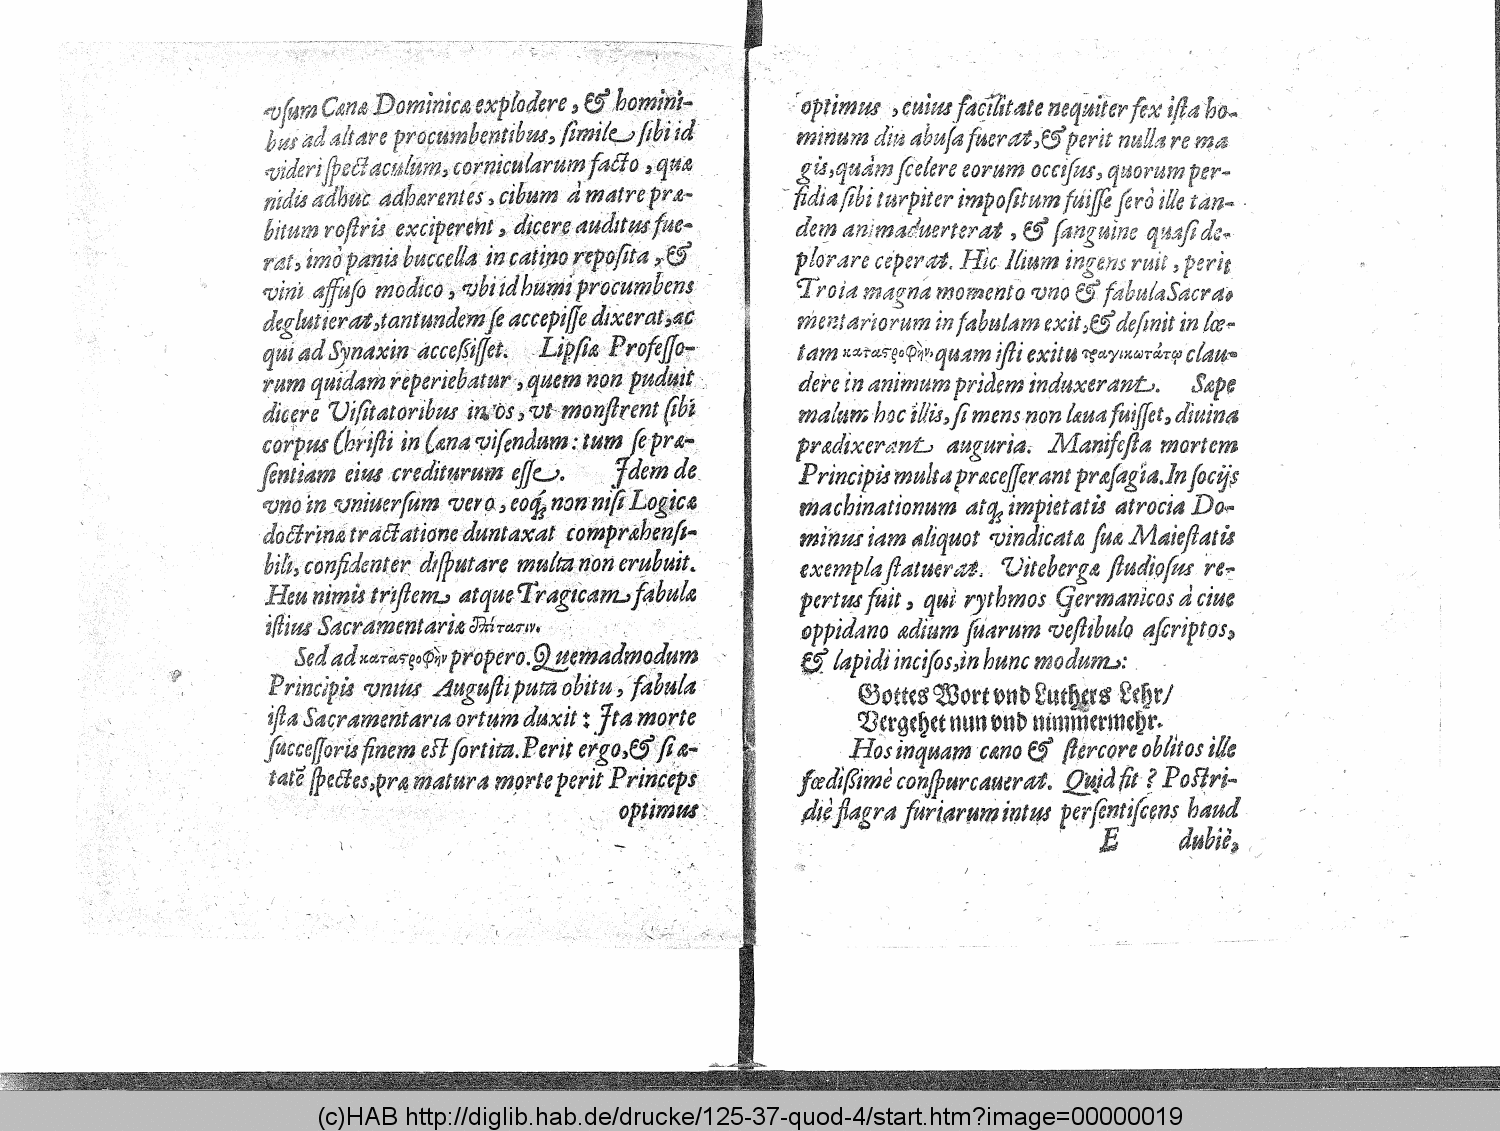 vſum Cænæ Dominicæ explodere, & homini-
bus ad altare procumbentibus, ſimile ſibi id
videri ſpectaculum, cornicularum facto, quæ
nidis adhuc adhærentes, cibum à matre præ-
bitum roſtris exciperent, dicere auditus fue-
rat, imò panis buccella in catino repoſita, &
vini affuſo modico, vbi id humi procumbens
deglutierat, tantundem ſe accepiſſe dixerat, ac
qui ad Synaxin acceßiſſet. Lipſiæ Profeſſo-
rum quidam reperiebatur, quem non puduit
dicere Viſitatoribus in os, vt monſtrent ſibi
corpus Chriſti in Cæna viſendum: tum ſe præ-
ſentiam eius crediturum eſſe. Idem de
vno in vniuerſum vero, eoq́; non niſi Logicæ
doctrinæ tractatione duntaxat compræhenſi-
bili, confidenter diſputare multa non erubuit.
Heu nimis triſtem atque Tragicam fabulæ
iſtius Sacramentariæ ἐπίτασιν.
Sed ad καταστροφὴν propero. Quemadmodum
Principis vnius Auguſti puta obitu, fabula
iſta Sacramentaria ortum duxit: Ita morte
ſucceſſoris finem est ſortita. Perit ergo, & ſi æ-
tatē ſpectes, præ matura morte perit Princeps
optimus
optimus, cuius facilitate nequiter fex iſta ho-
minum diu abuſa fuerat, & perit nulla re ma
gis, quàm ſcelere eorum occiſus, quorum per-
fidia ſibi turpiter impoſitum fuiſſe ſerò ille tan-
dem animaduerterat, & ſanguine quaſi de-
plorare ceperat. Hic Ilium ingens ruit, perit
Troia magna momento vno & fabula Sacra-
mentariorum in fabulam exit, & deſinit in lœ-
tam καταστροφὴν, quam iſti exitu τραγικωτάτῳ clau-
dere in animum pridem induxerant. Sæpe
malum hoc illis, ſi mens non læua fuiſſet, diuina
prædixerant auguria. Manifeſta mortem
Principis multa præceſſerant præſagia. In ſocijs
machinationum atq; impietatis atrocia Do-
minus iam aliquot vindicatæ ſuæ Maieſtatis
exempla ſtatuerat. Vitebergæ ſtudioſus re-
pertus fuit, qui rythmos Germanicos à ciue
oppidano ædium ſuarum veſtibulo aſcriptos,
& lapidi inciſos, in hunc modum:
Gottes Wort vnd Luthers Lehr/
Vergehet nun vnd nimmermehr.
Hos inquam cæno & ſtercore oblitos ille
fœdißimè conſpurcauerat. Quid fit? Postri-
diè flagra furiarum intus perſentiſcens haud
E dubiè,
(c)HAB http://diglib.hab.de/drucke/125-37-quod-4/start.htm?image=00000019